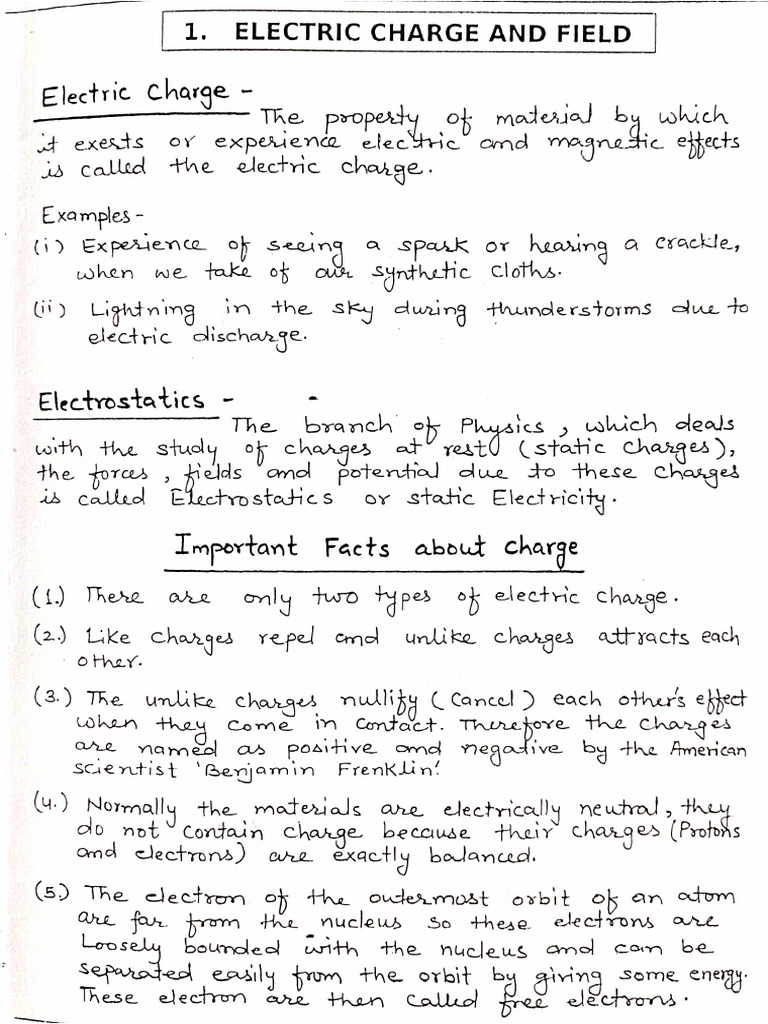 1. ELECTRIC CHARGE AND FIELD
Electric Charge -
The property of material by which
it exerts or experience electric and magnetic effects
is called the electric charge.
Examples -
(i) Experience of seeing a spark or hearing a crackle,
when we take of our synthetic cloths.
(ii) Lightning in the sky during thunderstorms due to
electric discharge.
Electrostatics - -
The branch of Physics, which deals
with the study of charges at rest (static charges),
the forces, fields and potential due to these charges
is called Electrostatics or static Electricity.
Important Facts about charge
(1.) There are only two types of electric charge.
(2.) Like charges repel and unlike charges attracts each
other.
(3.) The unlike charges nullify (Cancel) each other's effect
when they come in contact. Therefore the charges
are named as positive and negative by the American
scientist 'Benjamin Frenklin'.
(4.) Normally the materials are electrically neutral, they
do not contain charge because their charges (Protons
and electrons) are exactly balanced.
(5.) The electron of the outermost orbit of an atom
are far from the nucleus so these electrons are
Loosely bounded with the nucleus and can be
separated easily from the orbit by giving some energy.
These electron are then called free electrons.